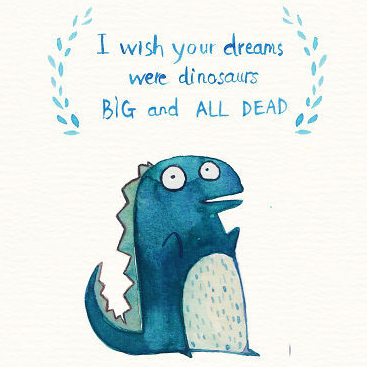 I wish your dreams
were dinosaurs
BIG and ALL DEAD